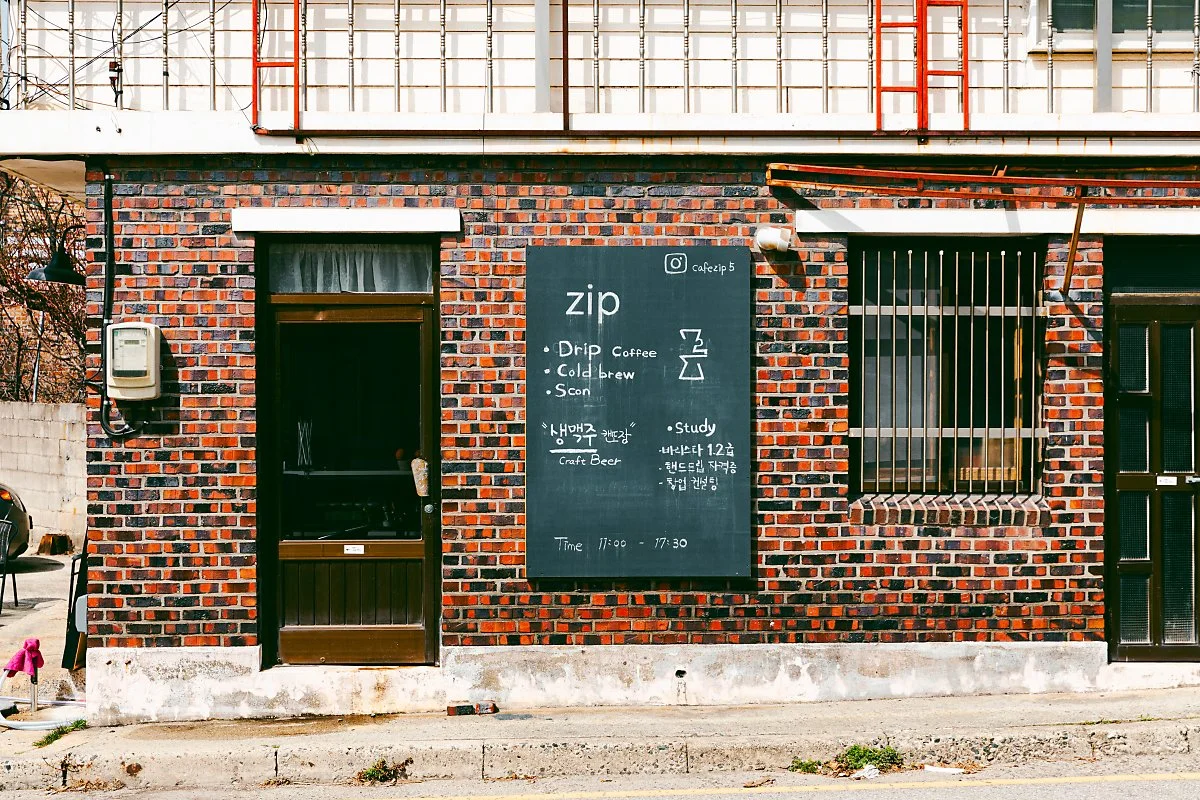 cafezip5
zip
• Drip Coffee
• Cold brew
• Scon
"생맥주 캔드캉"
Craft Beer
• Study
- 바리스타 1.2급
- 핸드드립 자격증
- 창업 컨설팅
Time 11:00 - 17:30